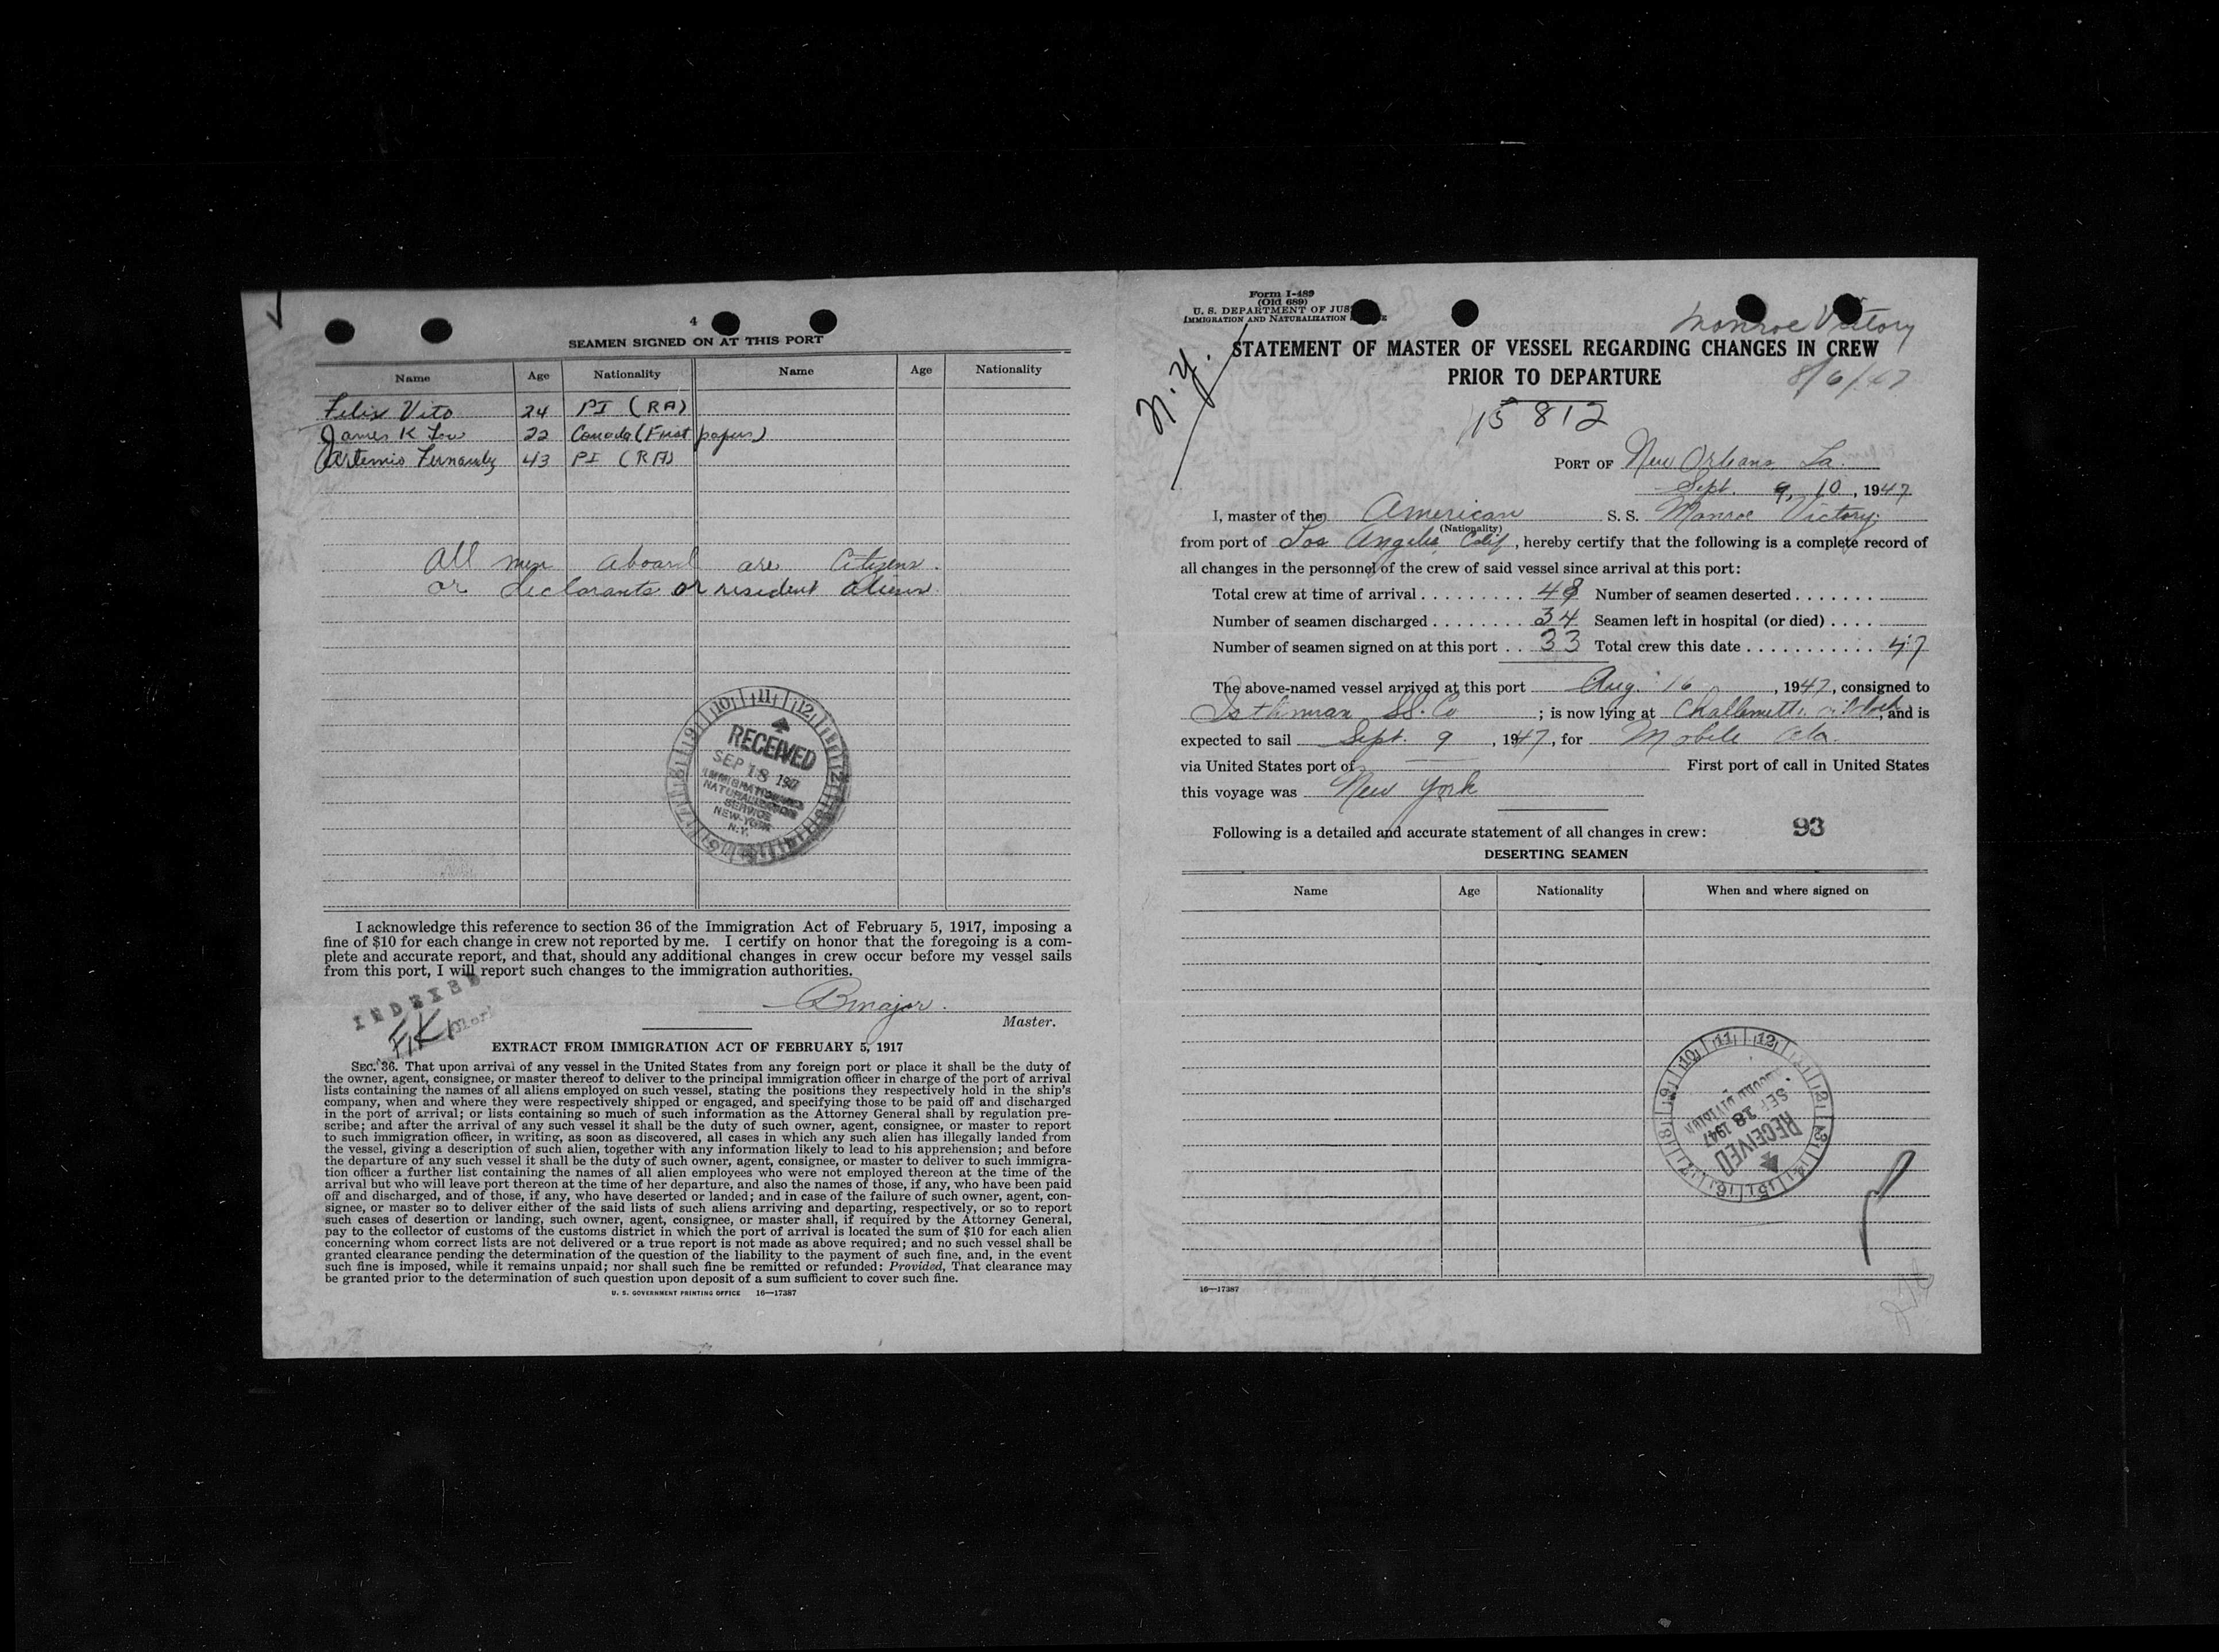 4
SEAMEN SIGNED ON AT THIS PORT
Name Age Nationality Name Age Nationality
Felix Vito 24 PI (RA)
James K Low 22 Canada (First papers)
Artemio Fernandez 43 PI (RA)
All men aboard are Citizens.
or declarants or resident aliens.
10 11 12
RECEIVED
SEP 18 1947
IMMIGRATION AND
NATURALIZATION
SERVICE
NEW YORK
N.Y.
I acknowledge this reference to section 36 of the Immigration Act of February 5, 1917, imposing a
fine of $10 for each change in crew not reported by me. I certify on honor that the foregoing is a com-
plete and accurate report, and that, should any additional changes in crew occur before my vessel sails
from this port, I will report such changes to the immigration authorities.
INDEXED
Clerk
BMajor.
Master.
EXTRACT FROM IMMIGRATION ACT OF FEBRUARY 5, 1917
SEC. 36. That upon arrival of any vessel in the United States from any foreign port or place it shall be the duty of
the owner, agent, consignee, or master thereof to deliver to the principal immigration officer in charge of the port of arrival
lists containing the names of all aliens employed on such vessel, stating the positions they respectively hold in the ship's
company, when and where they were respectively shipped or engaged, and specifying those to be paid off and discharged
in the port of arrival; or lists containing so much of such information as the Attorney General shall by regulation pre-
scribe; and after the arrival of any such vessel it shall be the duty of such owner, agent, consignee, or master to report
to such immigration officer, in writing, as soon as discovered, all cases in which any such alien has illegally landed from
the vessel, giving a description of such alien, together with any information likely to lead to his apprehension; and before
the departure of any such vessel it shall be the duty of such owner, agent, consignee, or master to deliver to such immigra-
tion officer a further list containing the names of all alien employees who were not employed thereon at the time of the
arrival but who will leave port thereon at the time of her departure, and also the names of those, if any, who have been paid
off and discharged, and of those, if any, who have deserted or landed; and in case of the failure of such owner, agent, con-
signee, or master so to deliver either of the said lists of such aliens arriving and departing, respectively, or so to report
such cases of desertion or landing, such owner, agent, consignee, or master shall, if required by the Attorney General,
pay to the collector of customs of the customs district in which the port of arrival is located the sum of $10 for each alien
concerning whom correct lists are not delivered or a true report is not made as above required; and no such vessel shall be
granted clearance pending the determination of the question of the liability to the payment of such fine, and, in the event
such fine is imposed, while it remains unpaid; nor shall such fine be remitted or refunded: Provided, That clearance may
be granted prior to the determination of such question upon deposit of a sum sufficient to cover such fine.
U. S. GOVERNMENT PRINTING OFFICE 16—17387
Form I-489
(Old 689)
U. S. DEPARTMENT OF JUS
IMMIGRATION AND NATURALIZATION
Monroe Victory
N.Y.
STATEMENT OF MASTER OF VESSEL REGARDING CHANGES IN CREW
PRIOR TO DEPARTURE
8/6/47
15812
PORT OF New Orleans, La.
Sept. 9, 10, 1947
I, master of the American S. S. Monroe Victory,
(Nationality)
from port of Los Angeles, Calif, hereby certify that the following is a complete record of
all changes in the personnel of the crew of said vessel since arrival at this port:
Total crew at time of arrival 48 Number of seamen deserted
Number of seamen discharged 34 Seamen left in hospital (or died)
Number of seamen signed on at this port 33 Total crew this date 47
The above-named vessel arrived at this port Aug. 16, 1947, consigned to
Isthmian SS. Co; is now lying at , and is
expected to sail Sept. 9, 1947, for Mobile Ala.
via United States port of First port of call in United States
this voyage was New York
Following is a detailed and accurate statement of all changes in crew: 93
DESERTING SEAMEN
Name Age Nationality When and where signed on
RECEIVED
SEP 18 1947
RECORD DIVISION
16—17387